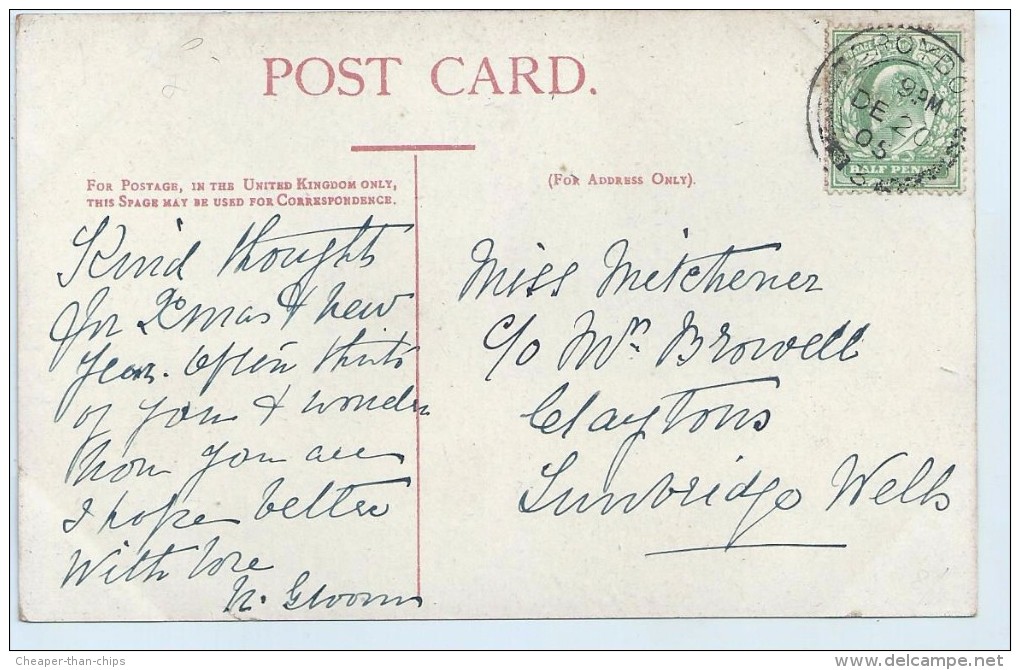 POST CARD.
FOR POSTAGE, IN THE UNITED KINGDOM ONLY,
THIS SPACE MAY BE USED FOR CORRESPONDENCE.
(FOR ADDRESS ONLY).
Kind thoughts
for Xmas & New
Year. Often think
of you & wonder
how you are
I hope better
With love
N. Gloom
Miss Mitchener
c/o Mrs. Browell
Claytons
Tunbridge Wells
9 PM
DE 20
05
HALF PENNY
Cheaper-than-chips
www.delcampe.net